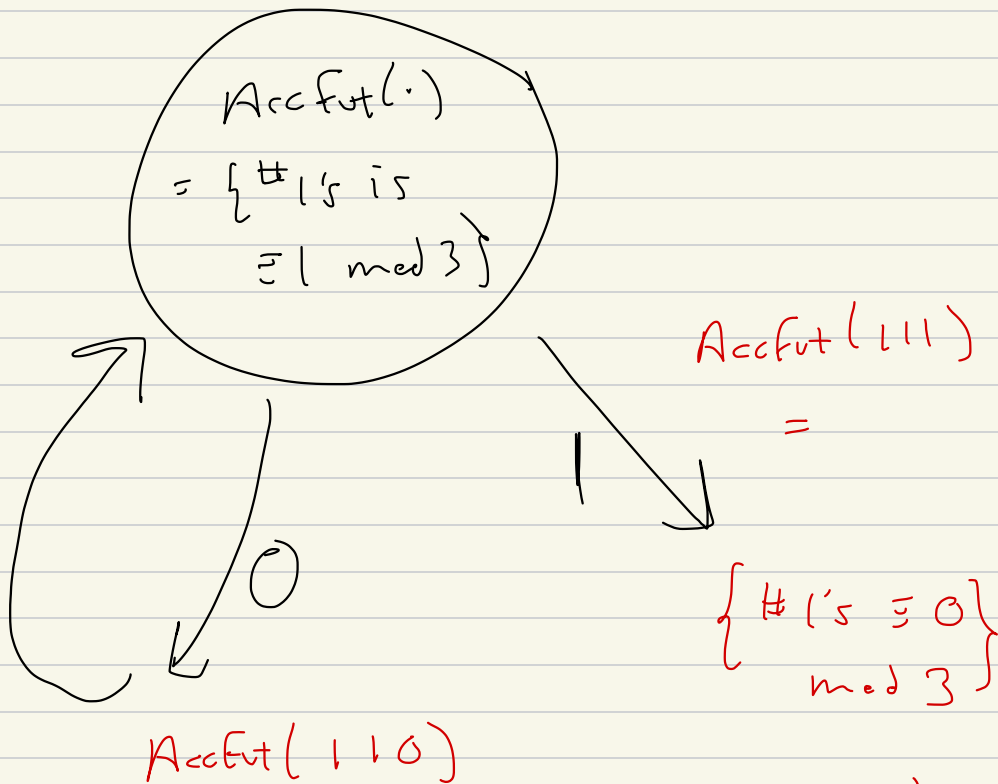 AccFut(·)
= { #1's is
≡ 1 mod 3}
AccFut(111)
=
1
0
{ #1's ≡ 0
mod 3 }
AccFut(110)